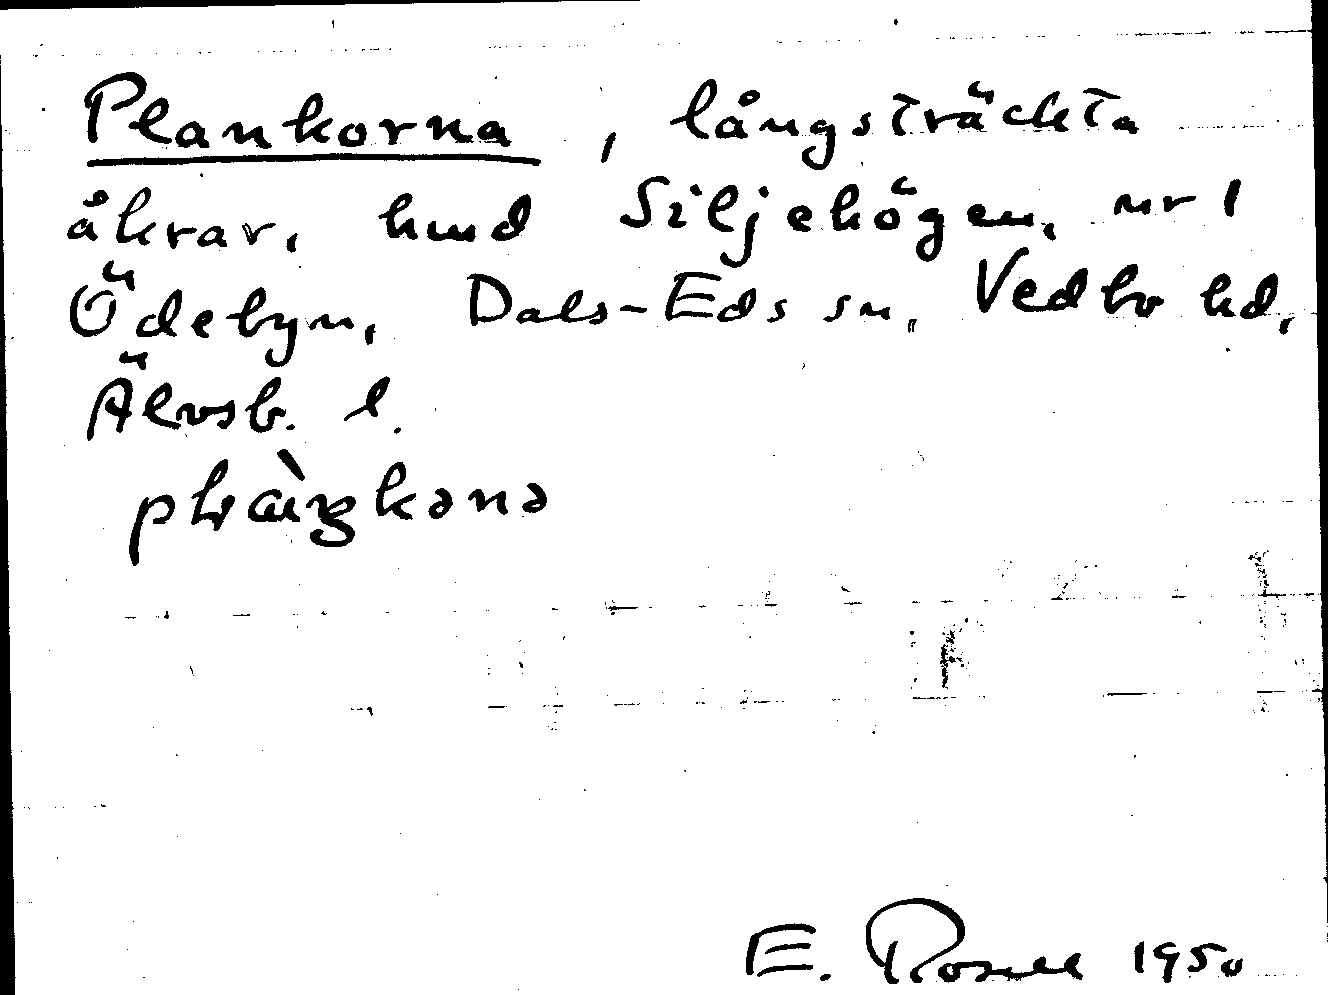 Plankorna, långsträckta
åkrar, hmd Siljehögen, nr 1
Ödebyn, Dals-Eds sn, Vedbo hd,
Älvsb. l.
E. Rosell 1950